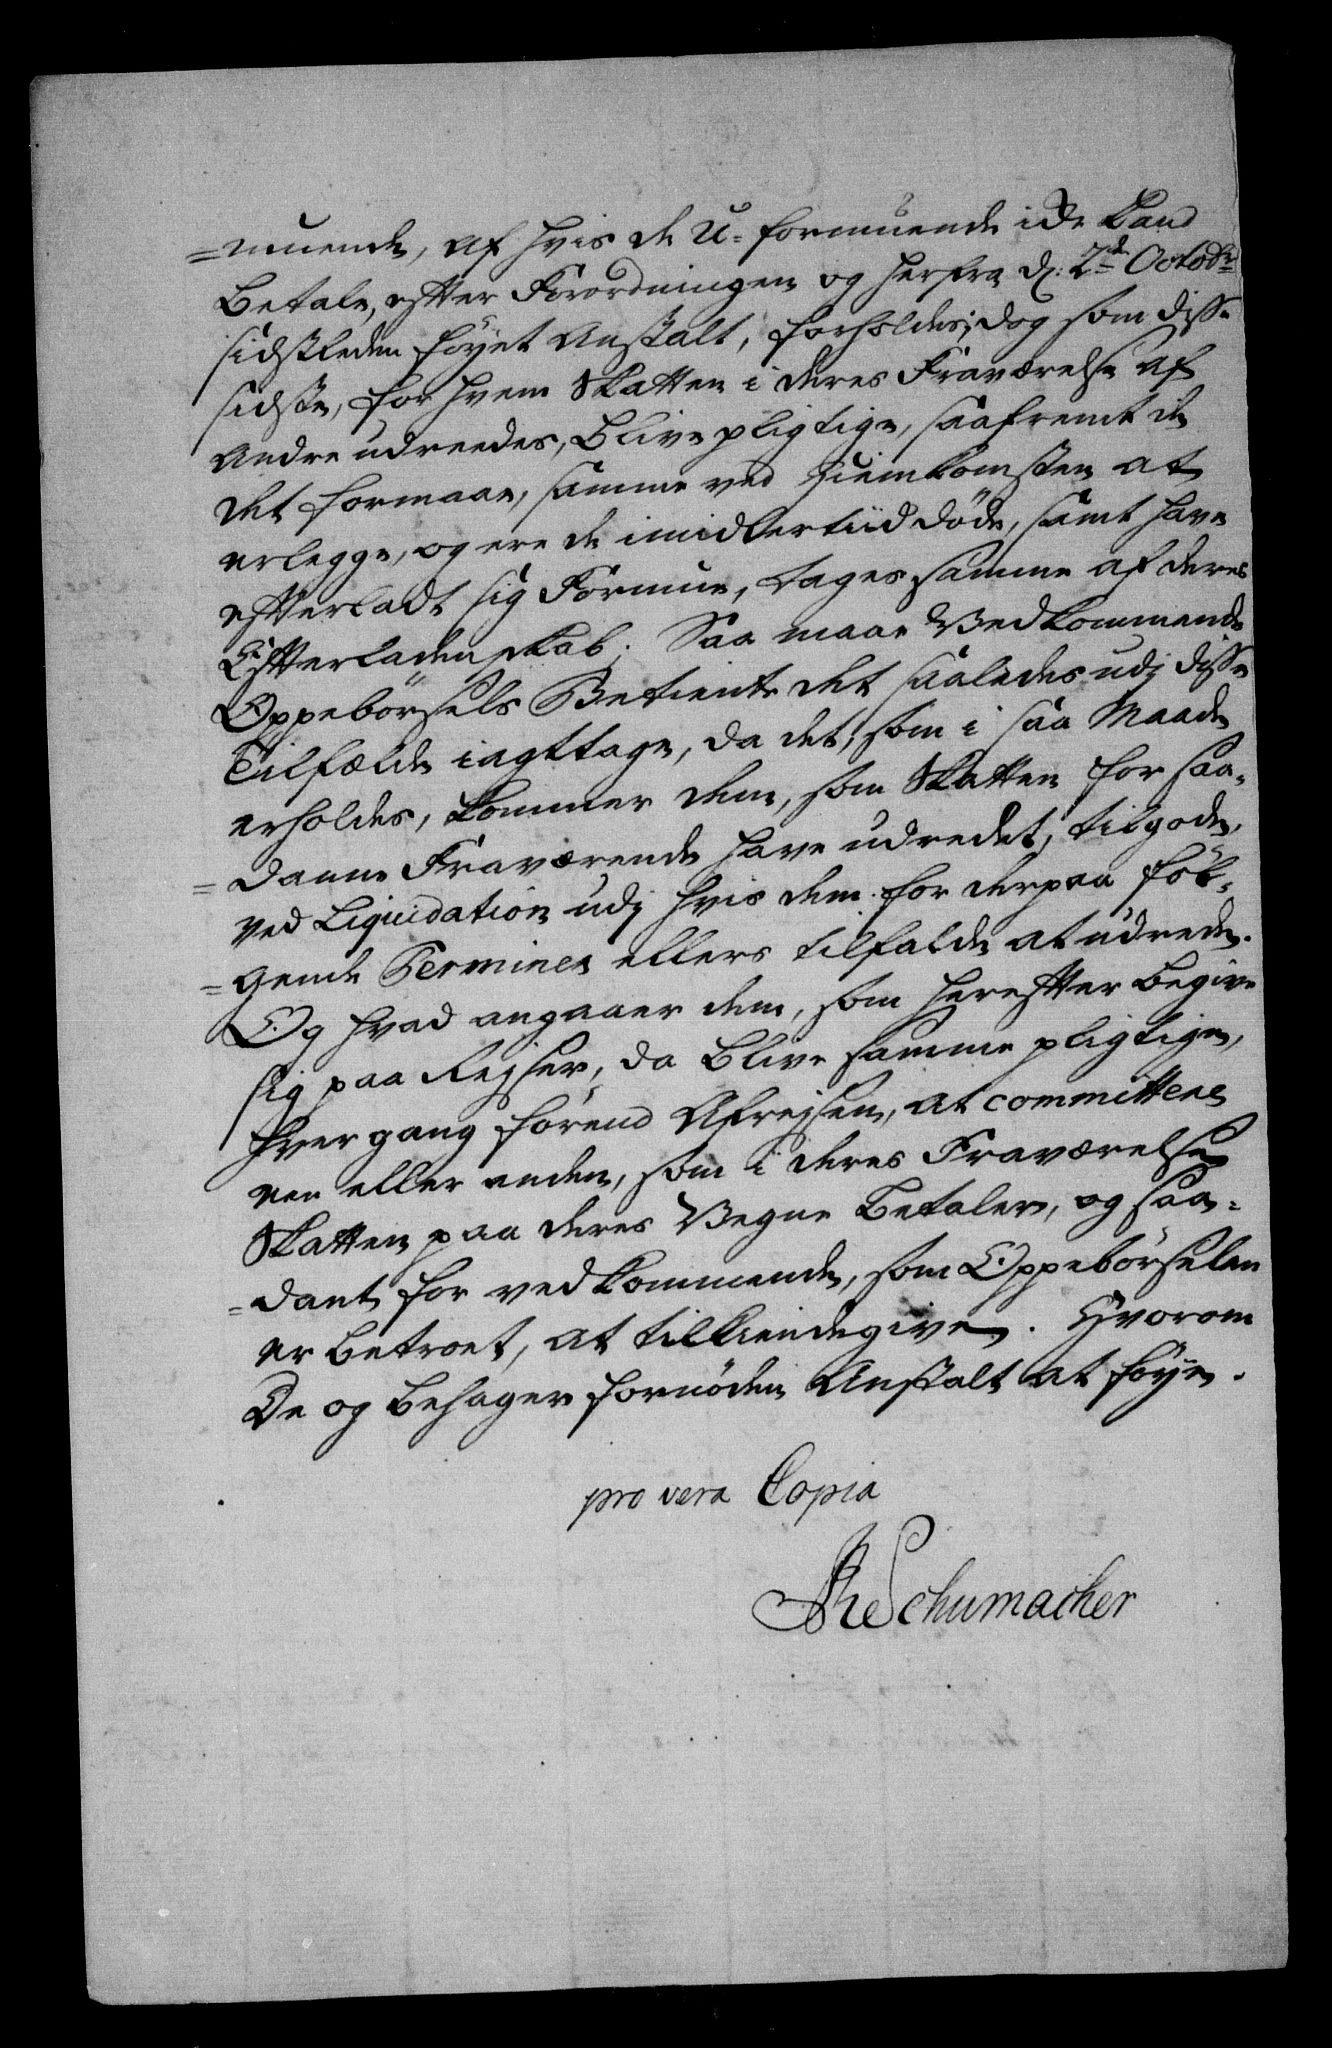 =muende, af hvis de U=formuende icke kand
betale, efter Forordningen og herfra d: 2de Octobr
sidstleden föyet Anstalt, forholdes; dog som disse
sidste, for hvem Skatten i deres Fraværelse af
Andre udreedes, blive pligtige, saafremt de
det formaae, samme ved Hiemkomsten at
erlegge, og ere de imidlertiid döde, samt have
efterladt sig Formue, tages samme af deres
Efterladenskab; Saa maae Vedkommende
Oppebörsels Betiente det saaledes udj disse
Tilfælde iagttage, da det, som i saa Maade
erholdes, kommer dem, som Skatten for saa=
=danne Fraværende have udredet, tilgode,
ved Liquidation udj hvis dem for derpaa föl=
=gende Terminer ellers tilfalde at udrede.
Og hvad angaaer dem, som herefter begive
sig paa Rejser, da blive samme pligtige,
hver gang förend Afrejsen, at committere
een eller anden, som i deres Fraværelse
Skatten paa deres Vegne betaler, og saa=
=dant for vedkommende, som Oppebörselen
er betroet, at tilkiendegive. Hvorom
De og behager fornöden Anstalt at föye.
pro vera Copia
Schumacher